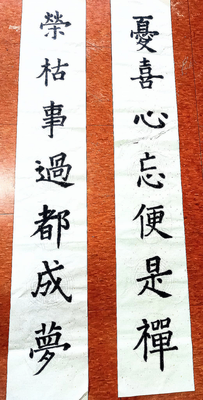 榮枯事過都成夢
憂喜心忘便是禪